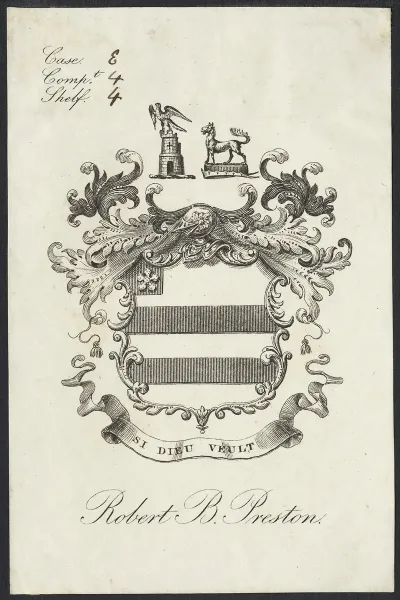 Case. E
Comp.t 4
Shelf. 4
SI DIEU VEULT
Robert B. Preston.